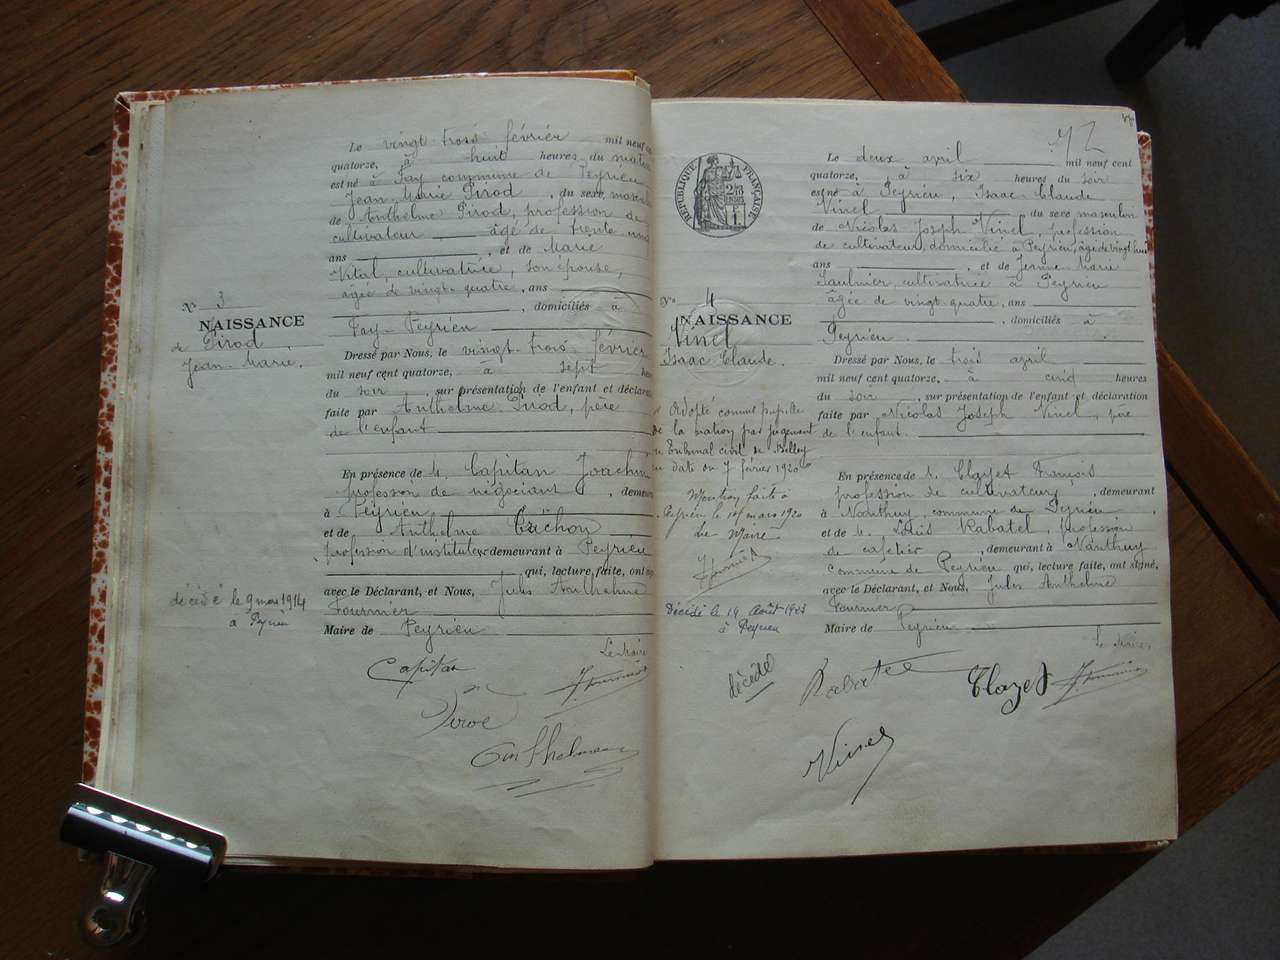 Le vingt-trois février mil neuf
quatorze, à huit heures du matin
est né à Fay commune de Peyrieu
Jean-Marie Pirod, du sexe masculin
de Anthelme Pirod, profession de
cultivateur âgé de trente
ans, et de Marie
Vital, cultivatrice, son épouse,
âgée de vingt-quatre, ans
, domiciliés à
Fay-Peyrieu
Nº 3
NAISSANCE
de Pirod
Jean-Marie.
Dressé par Nous, le vingt-trois février
mil neuf cent quatorze, à sept
du soir, sur présentation de l'enfant et déclaration
faite par Anthelme Pirod, père
de l'enfant
En présence de M. Capitan Joachim
profession de négociant, demeurant
à Peyrieu
et de Anthelme
profession d'instituteur demeurant à Peyrieu
qui, lecture faite, ont
avec le Déclarant, et Nous, Jules Anthelme
Fournier
Maire de Peyrieu
décédé le 9 mars 1914
à Peyrieu
Le Maire
Capitan
Pirod
J. Fournier
72
RÉPUBLIQUE FRANÇAISE
Le deux avril mil neuf cent
quatorze, à six heures du soir
est né à Peyrieu, Isaac Claude
Vinel du sexe masculin
de Nicolas Joseph Vinel, profession
de cultivateur, domicilié à Peyrieu, âgé de vingt huit
ans, et de Jeanne Marie
Saulnier, cultivatrice à Peyrieu
âgée de vingt-quatre, ans
, domiciliés à
Peyrieu.
Nº 4
NAISSANCE
Vinel
Isaac Claude.
Dressé par Nous, le trois avril
mil neuf cent quatorze, à cinq heures
du soir, sur présentation de l'enfant et déclaration
faite par Nicolas Joseph Vinel, père
de l'enfant.
Adopté comme pupille
de la nation par jugement
Tribunal civil de Belley
date du 7 février 1920
Mention faite à
Peyrieu le mars 1920
Le Maire
J. Fournier
Décédé le 19 Août 1923
à Peyrieu
décédé
En présence de M. Clayet François
profession de cultivateur, demeurant
à Nanthuy, commune de Peyrieu
et de M. Louis Rabatel, profession
de cafetier, demeurant à Nanthuy
commune de Peyrieu qui, lecture faite, ont signé,
avec le Déclarant, et Nous, Jules Anthelme
Fournier
Maire de Peyrieu
Le Maire,
Rabatel
Clayet
J. Fournier
Vinel